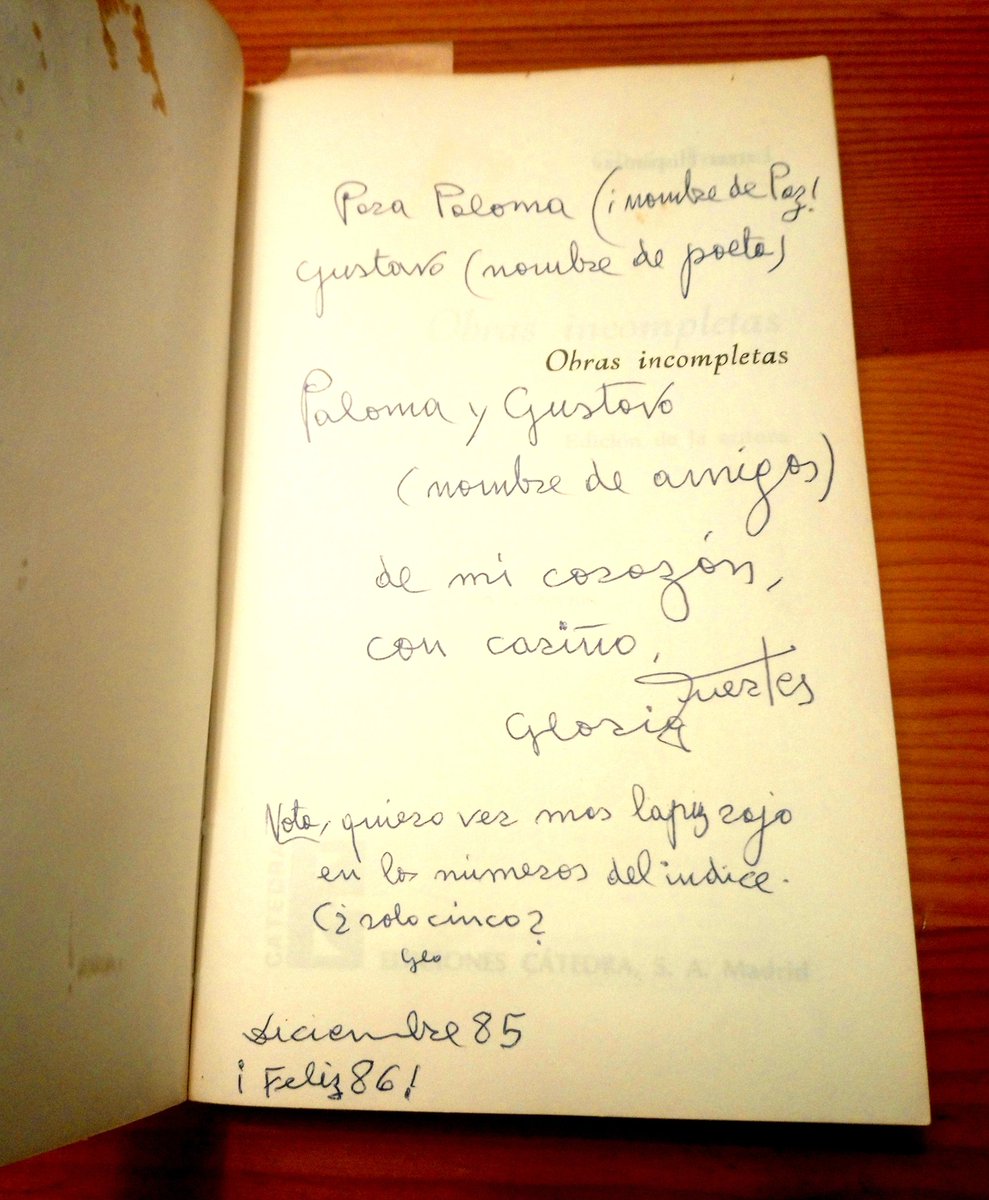 Para Paloma (¡nombre de Paz!
Gustavo (nombre de poeta)
Obras incompletas
Obras incompletas
Paloma y Gustavo
Edición de la autora
(nombre de amigos)
de mi corazón,
con cariño,
Gloria Fuertes
Nota, quiero ver mas lapiz rojo
en los números del indice.
(¿solo cinco?
Glo
EDICIONES CÁTEDRA, S. A. Madrid
diciembre 85
¡Feliz 86!